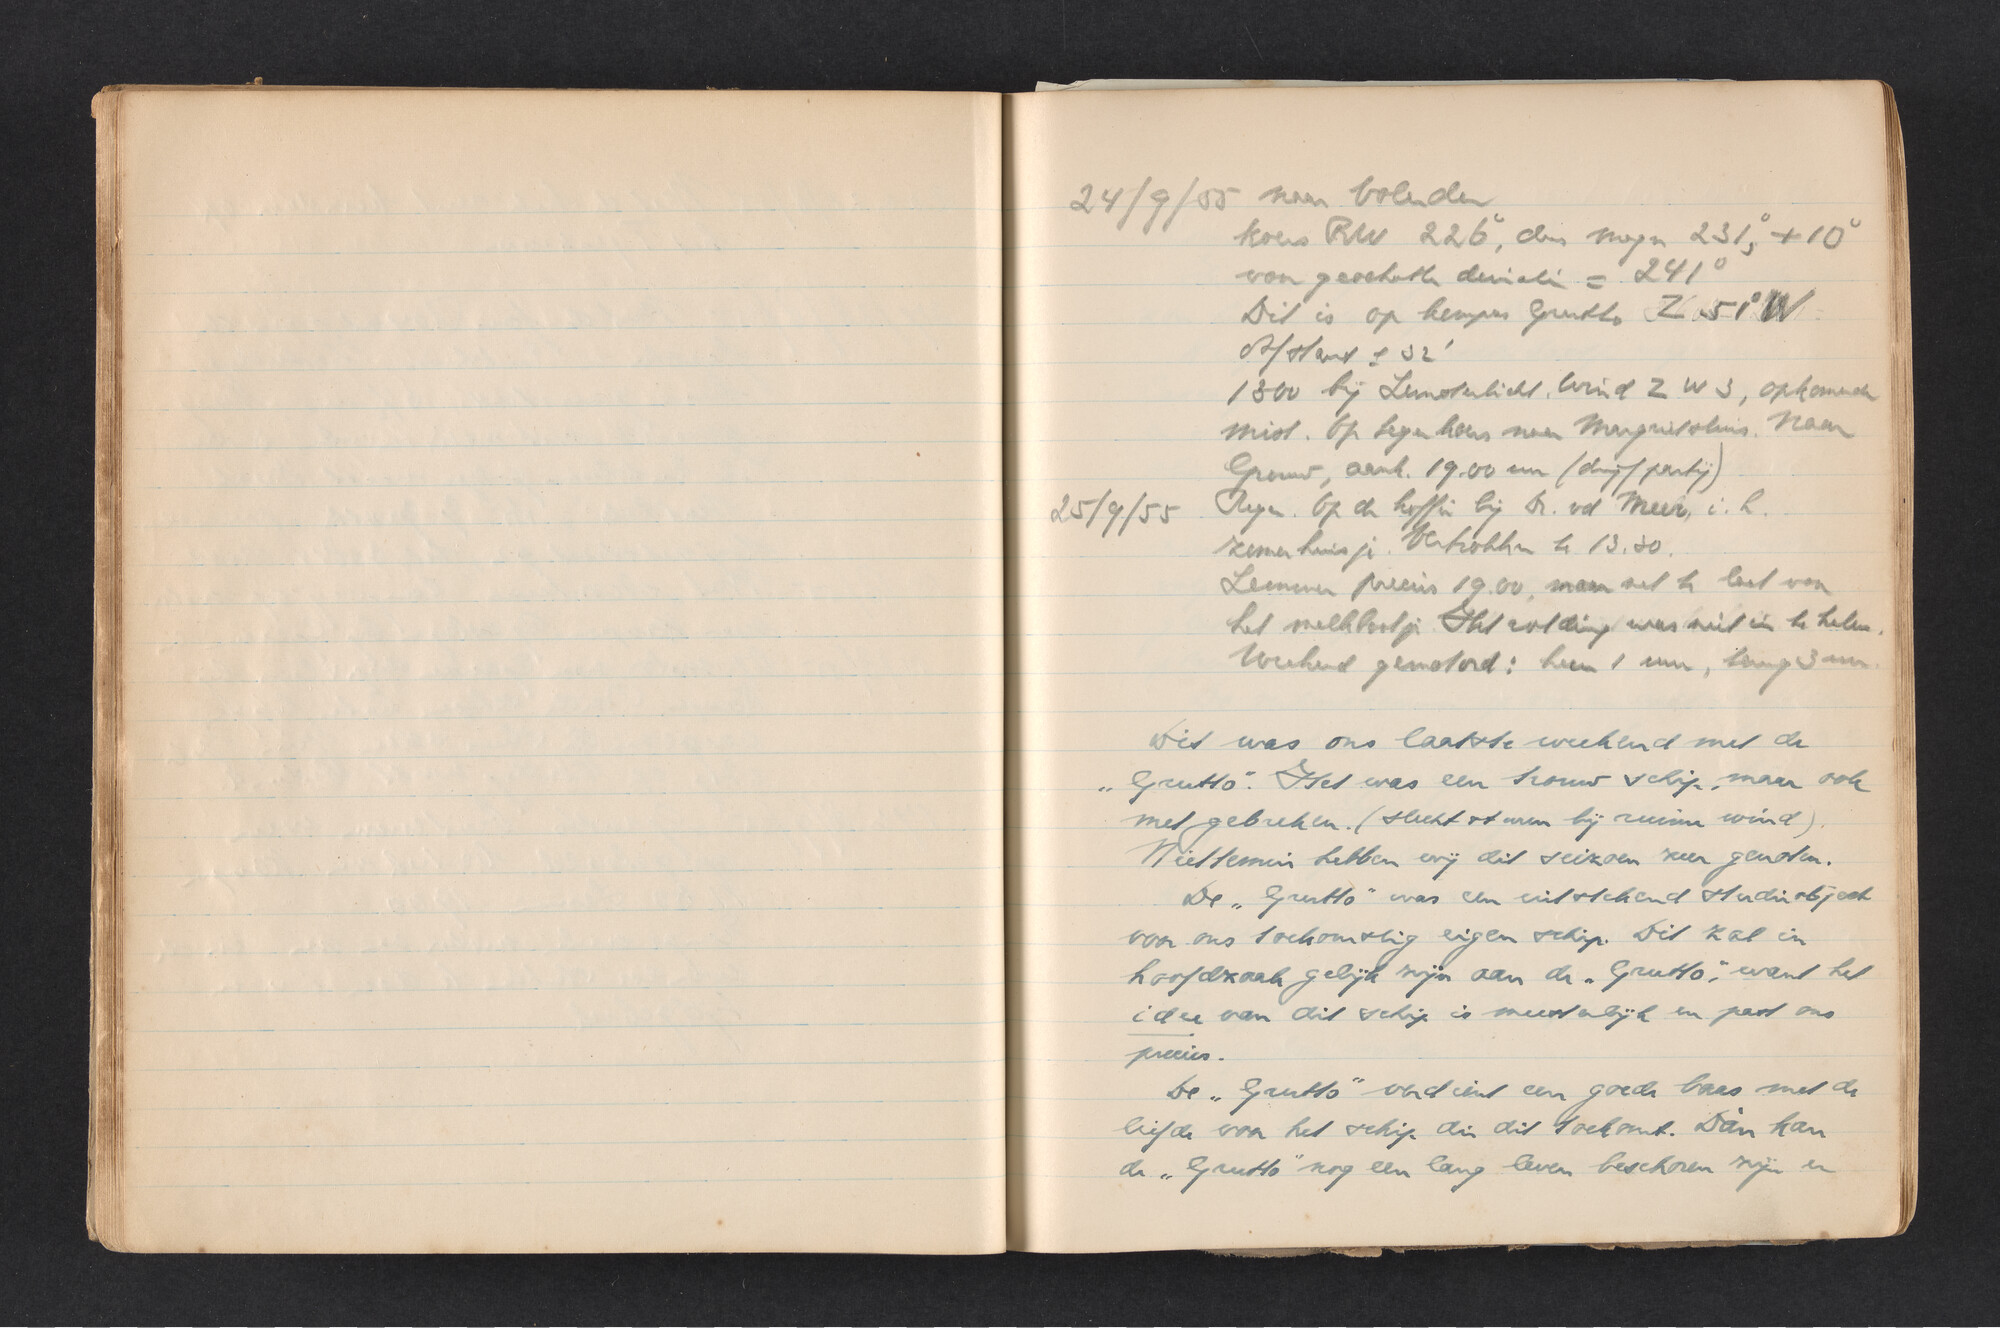 24/9/55 naar Volendam
koers RW 226°, dus magn 231°, +10°
van geschatte deviatie = 241°
Dit is op kompas Grutto Z 51° W
Afstand ± 32'
1300 bij Lemsterlicht. Wind ZW 3, opkomende
mist. Op tegenkoers naar Margrietsluis. Naar
Grouw, aank. 19.00 uur (drijfpartij)
25/9/55 Regen. Op de koffie bij Dr. vd Meer, i. h.
zomerhuisje. Vertrokken te 13.30.
Lemmer precies 19.00, maar net te laat van
het melkbootje. Het ding was niet in te halen.
Weekend gemotord: heen 1 uur, terug 3 uur.
Dit was ons laatste weekend met de
„Grutto". Het was een trouw schip, maar ook
met gebreken. (slecht sturen bij ruime wind).
Niettemin hebben wij dit seizoen zeer genoten.
De „Grutto" was een uitstekend studieobject
voor ons toekomstig eigen schip. Dit zal in
hoofdzaak gelijk zijn aan de „Grutto", want het
idee van dit schip is meesterlijk en past ons
precies.
De „Grutto" verdient een goede baas met de
liefde voor het schip die dit toekomt. Dàn kan
de „Grutto" nog een lang leven beschoren zijn en